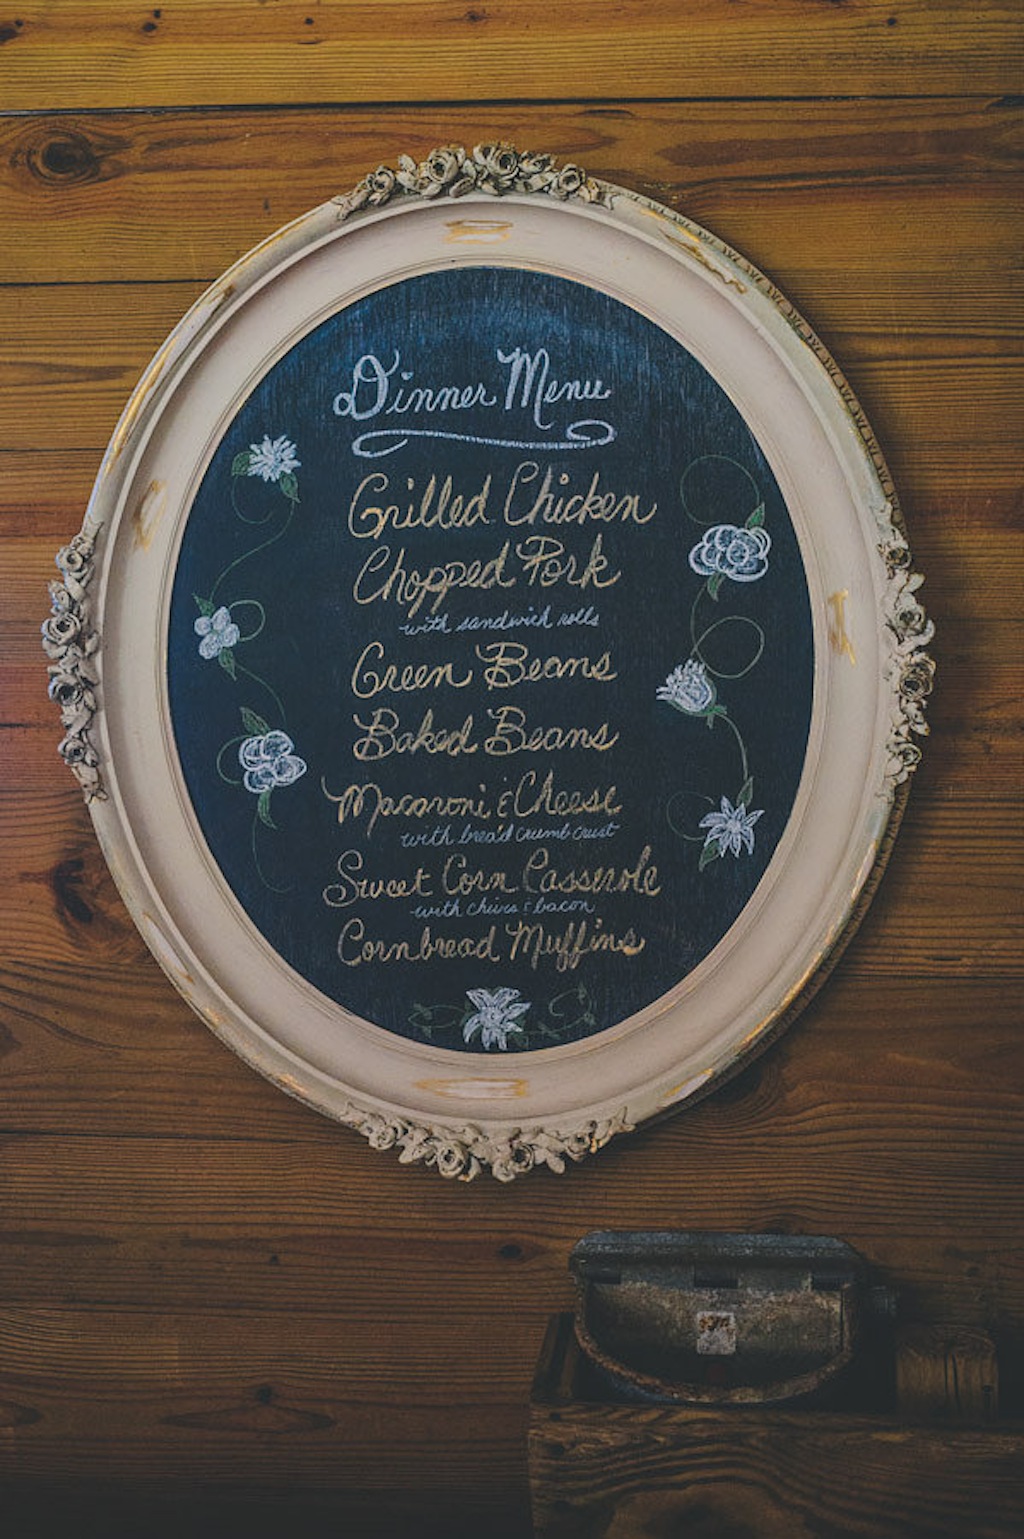 Dinner Menu
Grilled Chicken
Chopped Pork
with sandwich rolls
Green Beans
Baked Beans
Macaroni & Cheese
with bread crumb crust
Sweet Corn Casserole
with chives & bacon
Cornbread Muffins